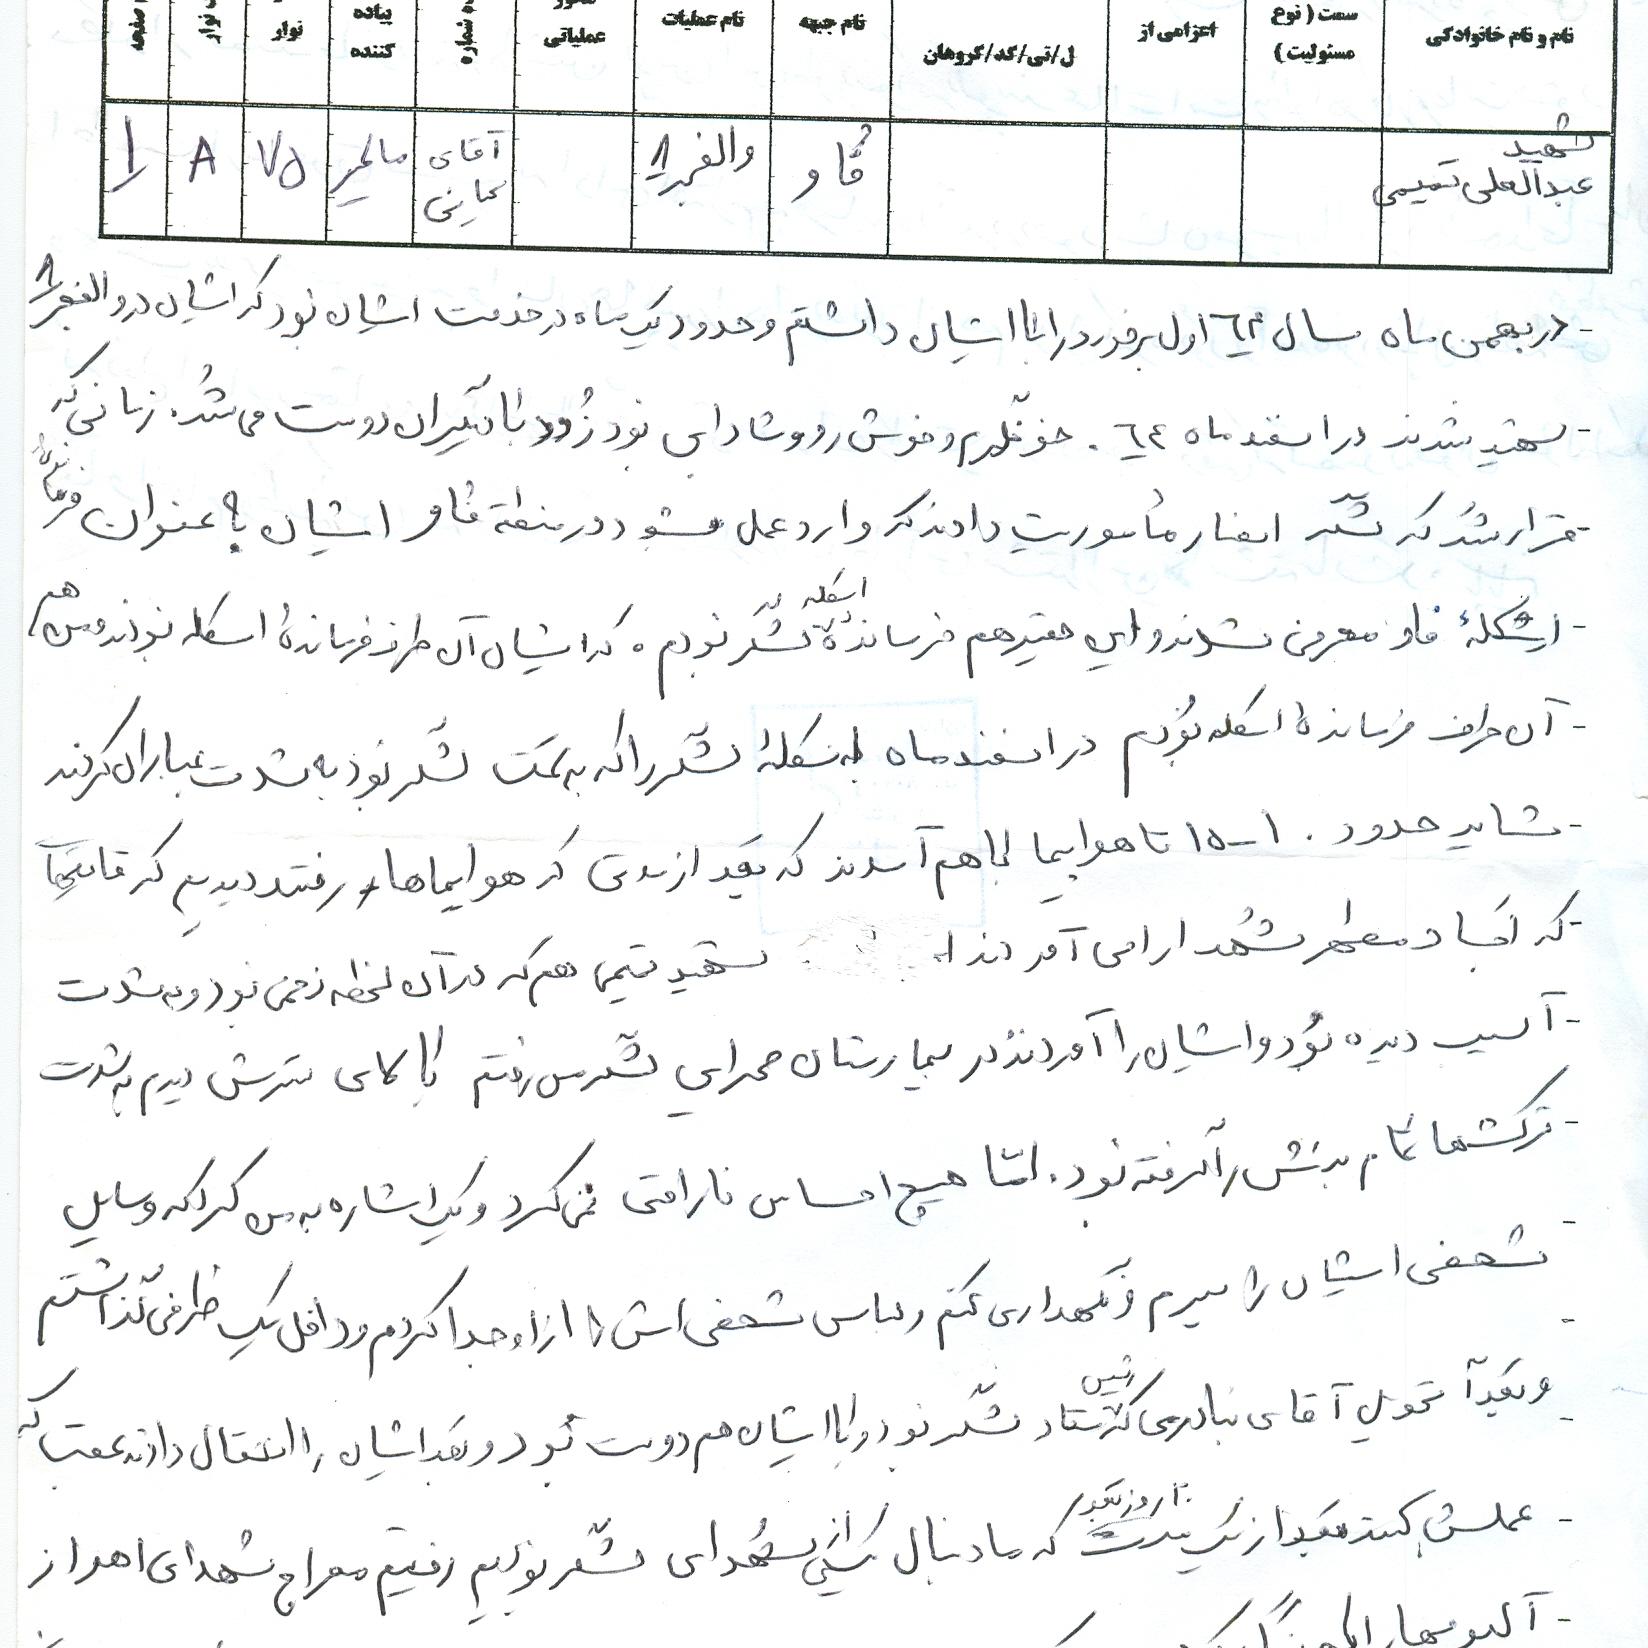 نام و نام خانوادگی سمت ( نوع مسئولیت ) اعزامی از ل/تی/گد/گروهان نام جبهه نام عملیات محور عملیاتی شماره پیاده کننده نوار نوار صفحه
شهید عبدالعلی تمیمی فاو والفجر ۸ آقای ۷۵ A ۱
- در بهمن ماه سال ٦٤ اول برخورد را با ایشان داشتم و حدود یک ماه در خدمت ایشان بود که ایشان در والفجر ۸
- شهید شدند در اسفند ماه ٦٤. خونگرم و خوش رو و شادابی بود زود با دیگران دوست می شد. زمانی که
- قرار شد که لشکر انصار مأموریت دادند که وارد عمل شود در منطقه فاو ایشان به عنوان فرمانده
- اسکلهٔ فاو معرفی شدند و این حقیر هم فرماندهٔ اسکله لشکر بودم. که ایشان آن طرف فرماندهٔ اسکله بودند و من هم
- آن طرف فرماندهٔ اسکله بودم در اسفند ماه اسکلهٔ لشکر را که به سمت لشکر بود به شدت بمباران کردند
- شاید حدود ۱۰-۱۵ تا هواپیما با هم آمدند که بعد از مدتی که هواپیماها رفتند دیدیم که قایقها
- که اجساد مطهر شهدا را می آوردند شهید تمیمی هم که در آن لحظه زخمی بود و به شدت
- آسیب دیده بود و ایشان را آوردند در بیمارستان صحرایی لشکر من رفتم بالای سرش دیدم به شدت
- ترکشها تمام بدنش را گرفته بود. امّا هیچ احساس ناراحتی نمی کرد و یک اشاره به من کرد که وسایل
- شخصی ایشان را ببرم و نگهداری کنم و لباس شخصی اش را از او جدا کردم و داخل یک ظرفی گذاشتم
- و بعداً تحویل آقای که رئیس ستاد لشکر بود و با ایشان هم دوست بود و بعد ایشان را انتقال دادند عقب که
- عملش کنند بعد از یک مدت ۲۰ روز بعد که ما دنبال یکی از شهدای لشکر بودیم رفتیم معراج شهدای اهواز
- آلبومها را